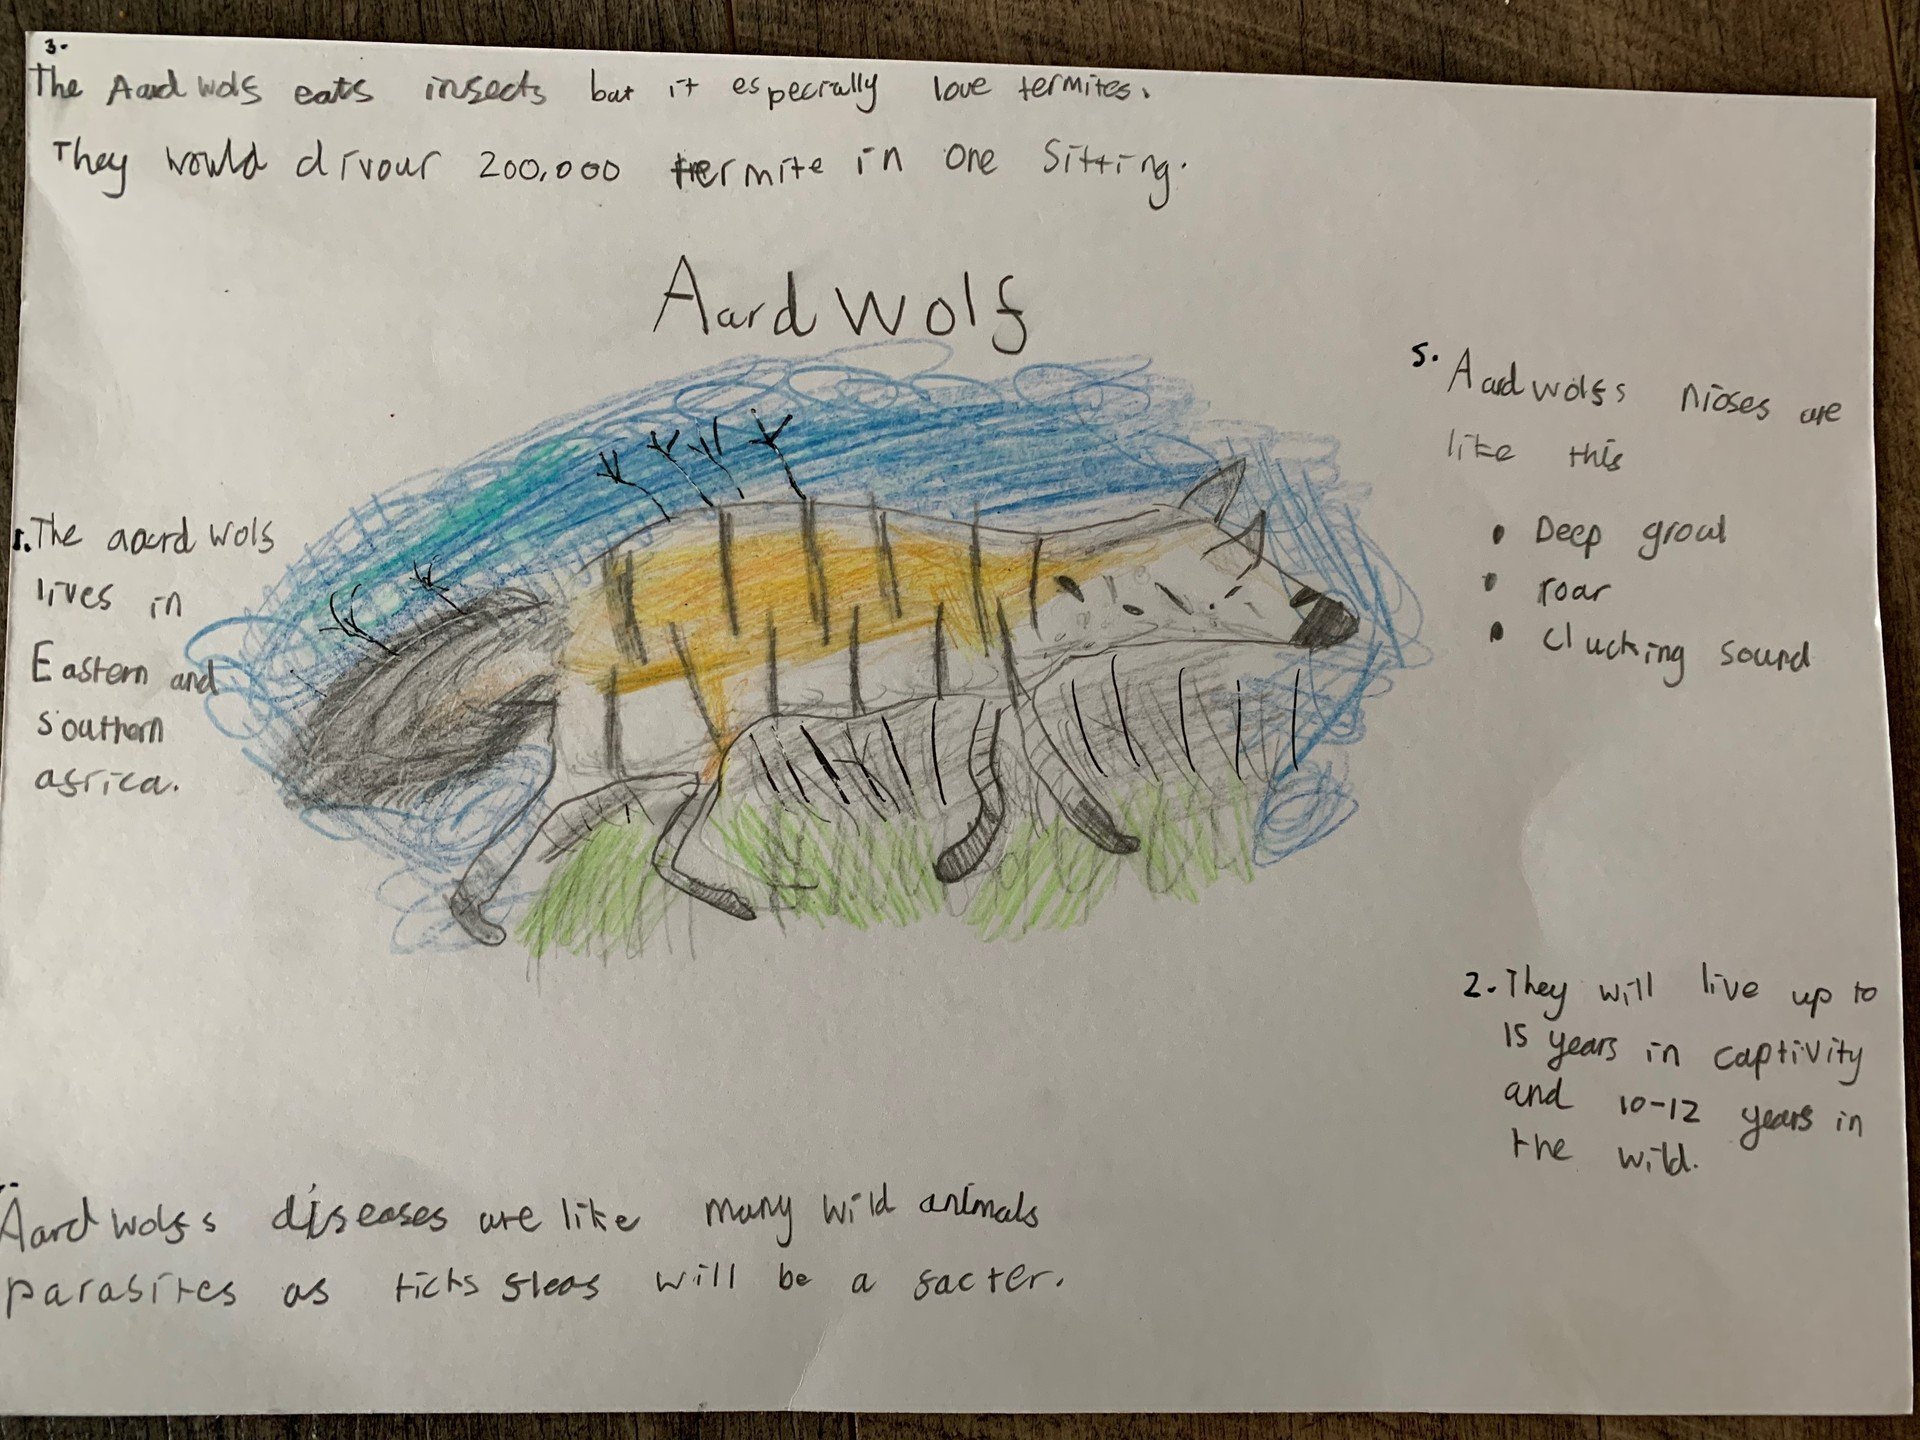 3.
The Aardwolf eats insects but it especially love termites.
They would divour 200,000 termite in one sitting.
Aardwolf
1. The aaurdwolf
lives in
Eastern and
southern
africa.
5. Aardwolfs nioses are
like this
• Deep growl
• roar
• clucking sound
2. They will live up to
15 years in captivity
and 10-12 years in
the wild.
Aardwolfs diseases are like many wild animals
parasites as ticks fleas will be a facter.